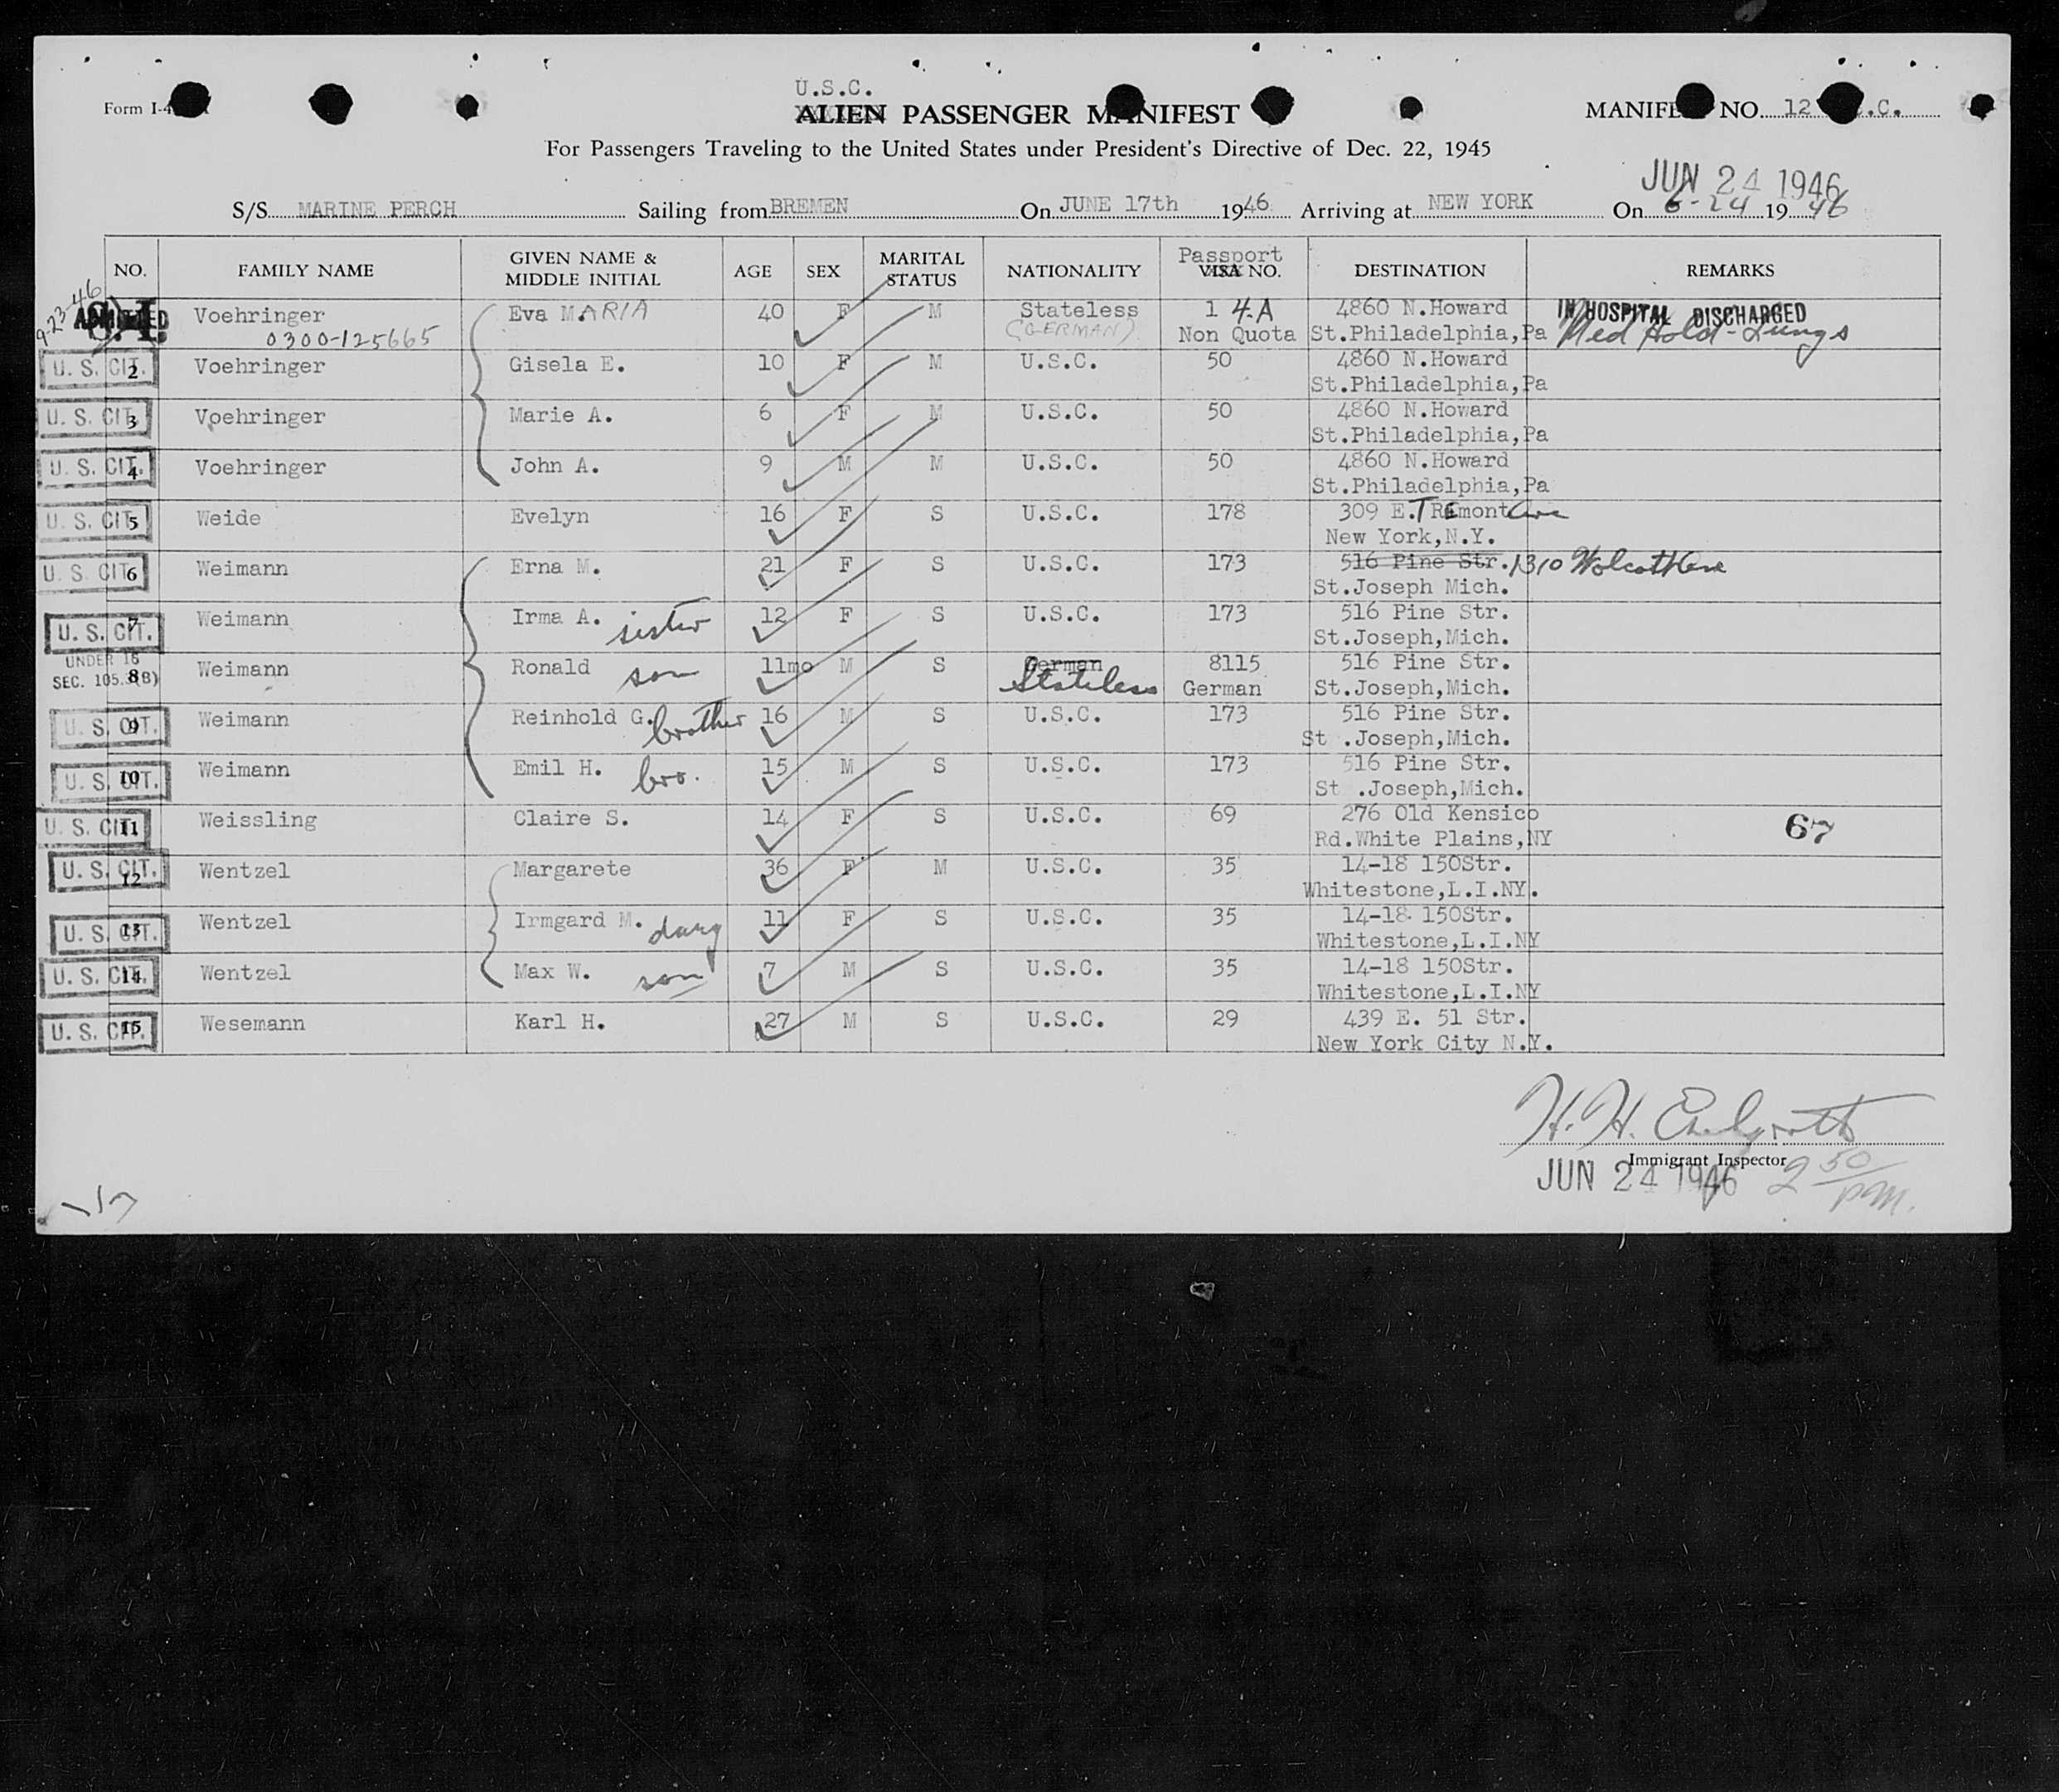 U.S.C.
Form I-4
ALIEN PASSENGER MANIFEST
MANIFEST NO. 12 .C.
For Passengers Traveling to the United States under President's Directive of Dec. 22, 1945
JUN 24 1946
S/S MARINE PERCH Sailing from BREMEN On JUNE 17th 1946 Arriving at NEW YORK On 6-24 1946
NO. FAMILY NAME GIVEN NAME & MIDDLE INITIAL AGE SEX MARITAL STATUS NATIONALITY Passport VISA NO. DESTINATION REMARKS
9-23-46
ADMITTED S.I. Voehringer Eva MARIA 40 F M Stateless 1 4.A 4860 N.Howard IN HOSPITAL DISCHARGED
0300-125665 (GERMAN) Non Quota St.Philadelphia,Pa Med Hold-Lungs
U. S. CIT. 2 Voehringer Gisela E. 10 F M U.S.C. 50 4860 N.Howard
St.Philadelphia,Pa
U. S. CIT. 3 Voehringer Marie A. 6 F M U.S.C. 50 4860 N.Howard
St.Philadelphia,Pa
U. S. CIT. 4 Voehringer John A. 9 M M U.S.C. 50 4860 N.Howard
St.Philadelphia,Pa
U. S. CIT. 5 Weide Evelyn 16 F S U.S.C. 178 309 E.TREmont Ave
New York,N.Y.
U. S. CIT. 6 Weimann Erna M. 21 F S U.S.C. 173 516 Pine Str. 1310 Wolcott Ave
St.Joseph Mich.
U. S. CIT. 7 Weimann Irma A. sister 12 F S U.S.C. 173 516 Pine Str.
St.Joseph,Mich.
UNDER 16
SEC. 105.3(B) 8 Weimann Ronald son 11mo M S German 8115 516 Pine Str.
Stateless German St.Joseph,Mich.
U. S. CIT. 9 Weimann Reinhold G. brother 16 M S U.S.C. 173 516 Pine Str.
St .Joseph,Mich.
U. S. CIT. 10 Weimann Emil H. bro. 15 M S U.S.C. 173 516 Pine Str.
St .Joseph,Mich.
U. S. CIT. 11 Weissling Claire S. 14 F S U.S.C. 69 276 Old Kensico 67
Rd.White Plains,NY
U. S. CIT. 12 Wentzel Margarete 36 F M U.S.C. 35 14-18 150Str.
Whitestone,L.I.NY.
U. S. CIT. 13 Wentzel Irmgard M. daug 11 F S U.S.C. 35 14-18 150Str.
Whitestone,L.I.NY
U. S. CIT. 14 Wentzel Max W. son 7 M S U.S.C. 35 14-18 150Str.
Whitestone,L.I.NY
U. S. CIT. 15 Wesemann Karl H. 27 M S U.S.C. 29 439 E. 51 Str.
New York City N.Y.
H. H.
Immigrant Inspector
JUN 24 1946 2 50 pm.